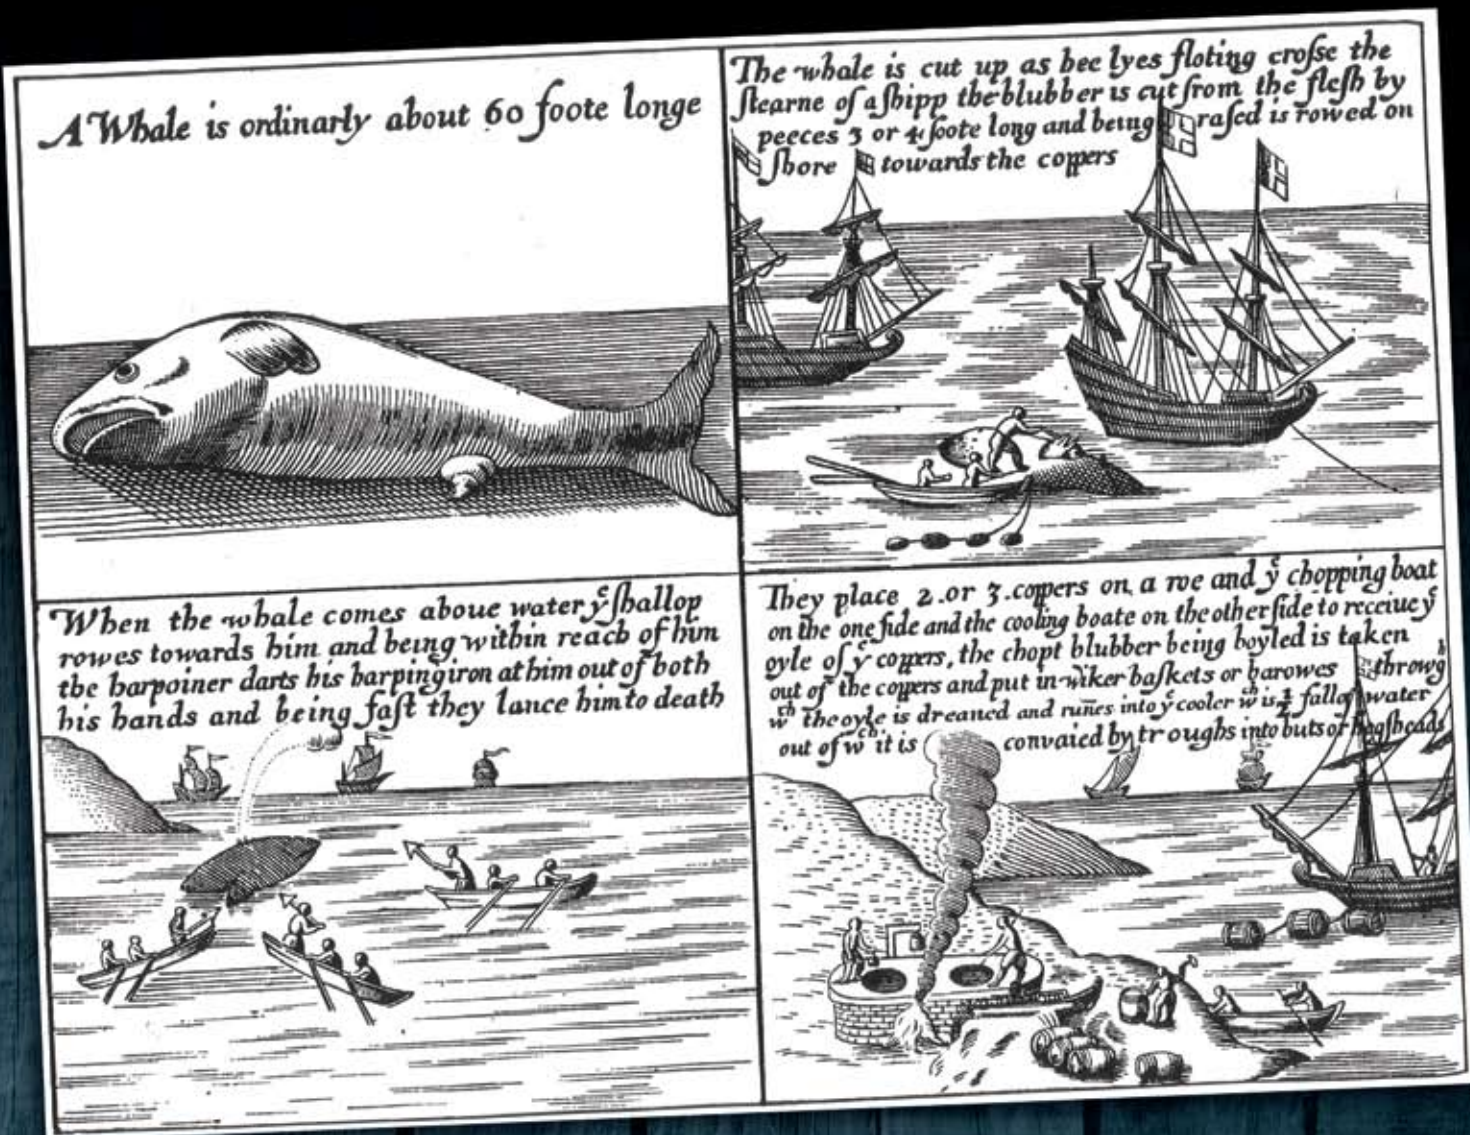 A Whale is ordinarly about 60 foote longe
The whale is cut up as hee lyes floting crosse the
stearne of a shipp the blubber is cut from the flesh by
peeces 3 or 4 foote long and being rased is rowed on
shore towards the coppers
When the whale comes aboue water yͤ shallop
rowes towards him and being within reach of him
the harpoiner darts his harping iron at him out of both
his hands and being fast they lance him to death
They place 2 . or 3 . coppers on a roe and yͤ chopping boat
on the one side and the cooling boate on the other side to receiue yͤ
oyle of yͤ coppers, the chopt blubber being boyled is taken
out of the coppers and put in wiker baskets or barowes throwgͪ
wͨͪ the oyle is dreaned and runes into yͤ cooler wͨͪ is ½ full of water
out of wͨͪ it is convaied by troughs into buts or hogsheads